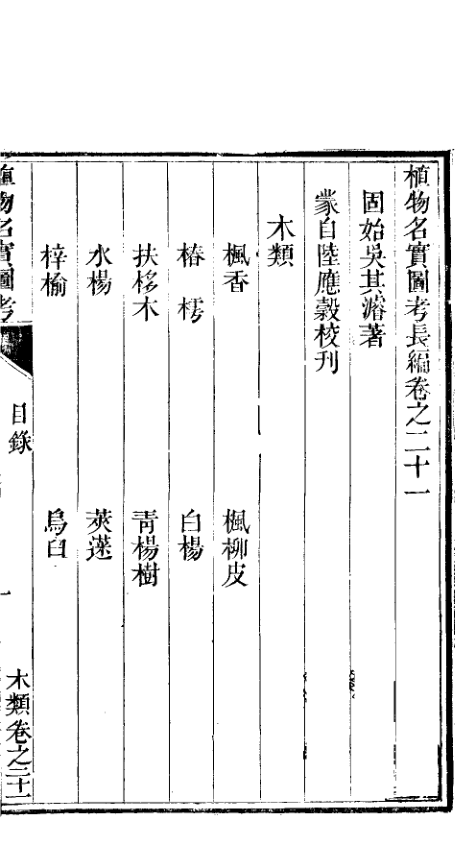 植物名實圖考長編卷之二十一
固始吳其濬著
蒙自陸應穀校刊
木類
楓香 楓柳皮
椿樗 白楊
扶栘木 青楊樹
水楊 莢蒾
梓榆 烏臼
植物名實圖考 目錄 一 木類卷之二十一